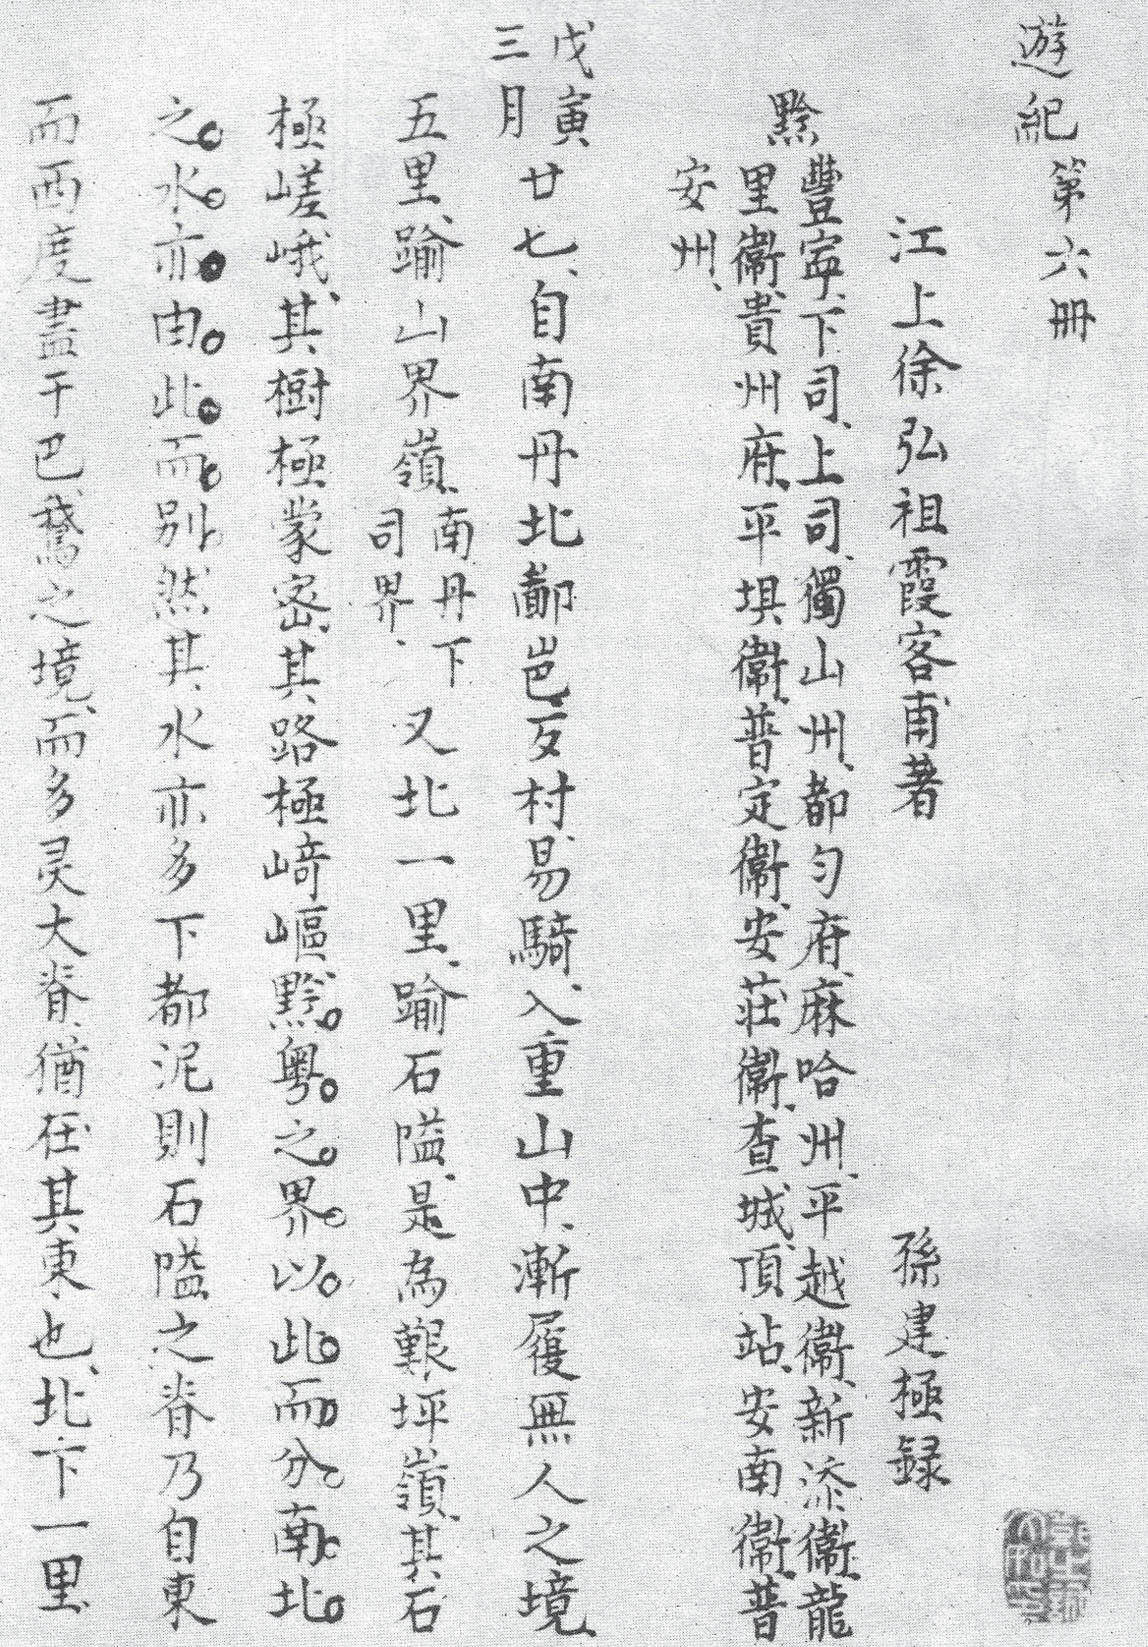 遊紀第六冊
江上徐弘祖霞客甫著　孫建極録
黔
豐寧、下司、上司、獨山州、都匀府、麻哈州、平越衞、新添衞、龍
里衞、貴州府、平垻衞、普定衞、安莊衞、查城、頂站、安南衞、普
安州、
戊寅
三月
廿七、自南丹北鄙岜歹村、易騎、入重山中、漸履無人之境
五里、踰山界嶺、
南丹下
司界、
又北一里、踰石隘、是為艱坪嶺、其石
極嵯峨、其樹極蒙密、其路極崎嶇、黔粤之界、以此而分、南北
之水、亦由此而别、然其水亦多下都泥、則石隘之脊、乃自東
而西度、盡于巴鵞之境、而多灵大脊、猶在其東也、北下一里